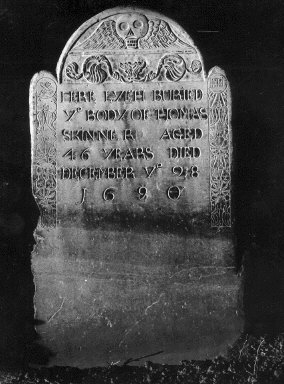 HERE LYETH BURIED
Yᵉ BODY OF THOMAS
SKINNER AGED
46 YEARS DIED
DECEMBER Yᵉ 28
1690